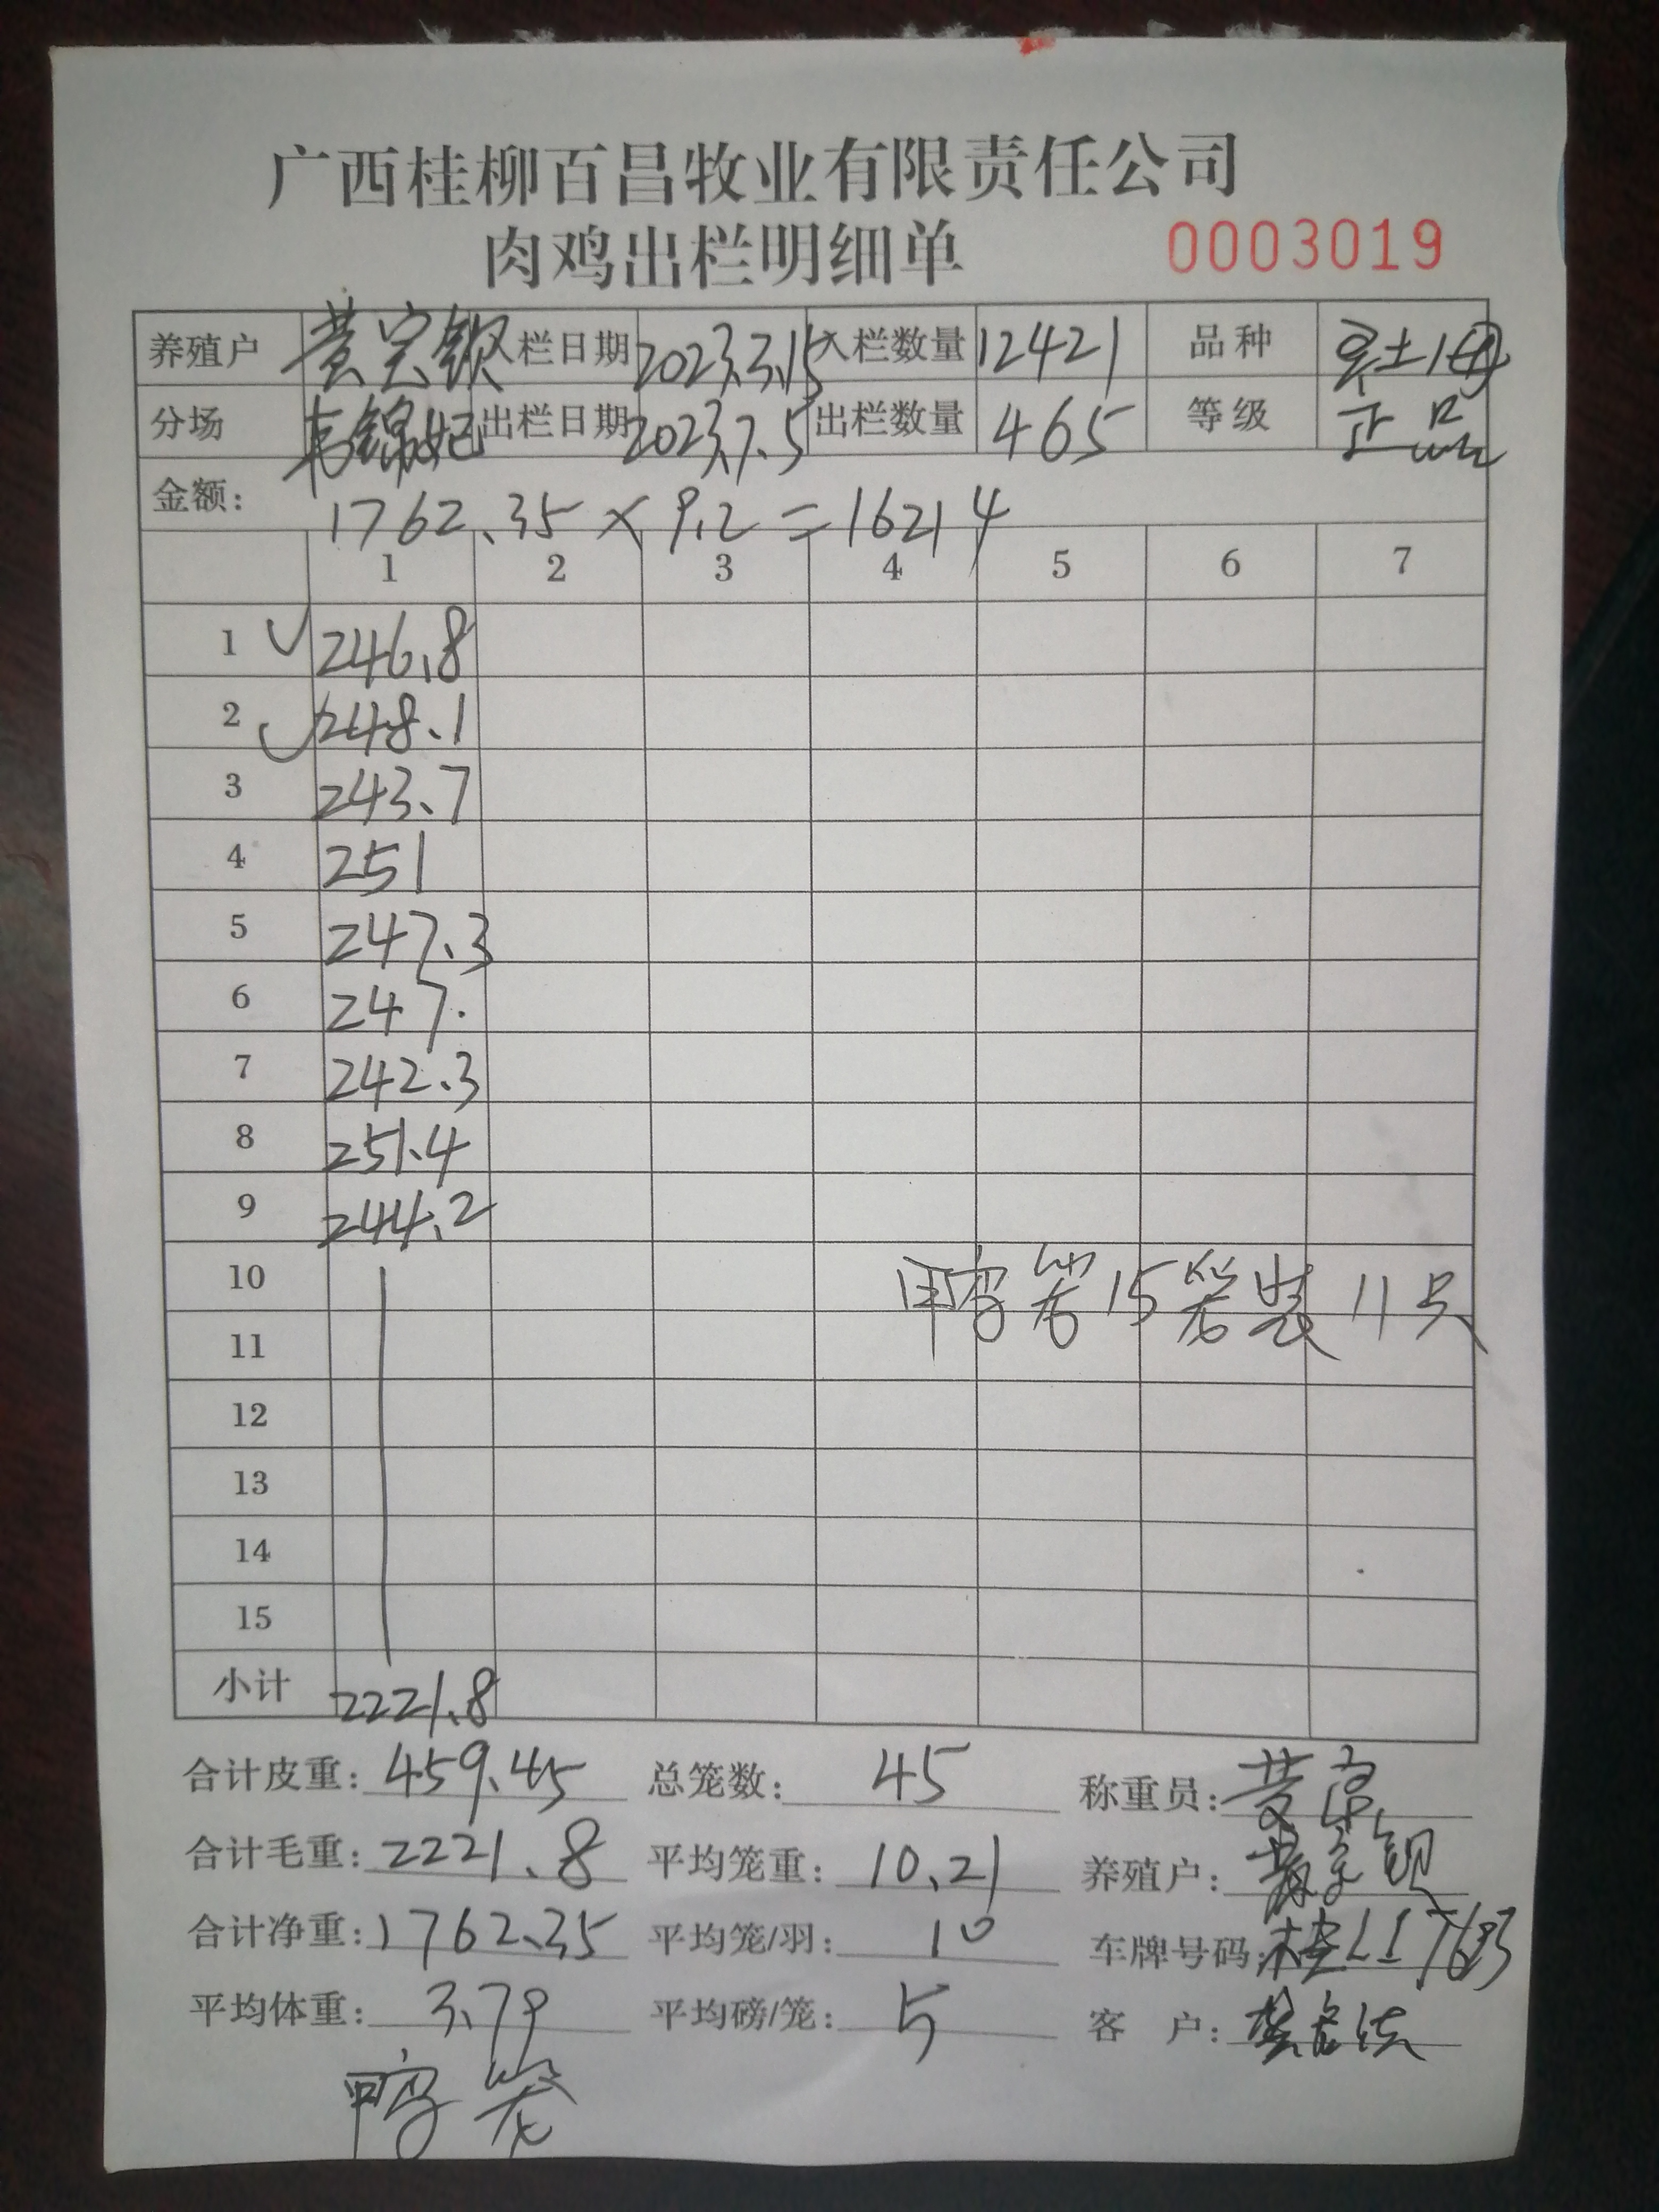 广西桂柳百昌牧业有限责任公司
肉鸡出栏明细单 0003019
养殖户 黄宝钦 入栏日期 2023.3.15 入栏数量 12421 品种 土1母
分场 韦锦妃 出栏日期 2023.7.5 出栏数量 465 等级 正品
金额: 1762.35 × 9.2 = 16214
1 2 3 4 5 6 7
1 246.8
2 248.1
3 243.7
4 251
5 247.3
6 247.
7 242.3
8 251.4
9 244.2
10 鸭笼15笼装11只
11
12
13
14
15
小计 2221.8
合计皮重: 459.45 总笼数: 45 称重员:
合计毛重: 2221.8 平均笼重: 10.21 养殖户:
合计净重: 1762.35 平均笼/羽: 10 车牌号码:
平均体重: 3.79 平均磅/笼: 5 客 户:
鸭笼